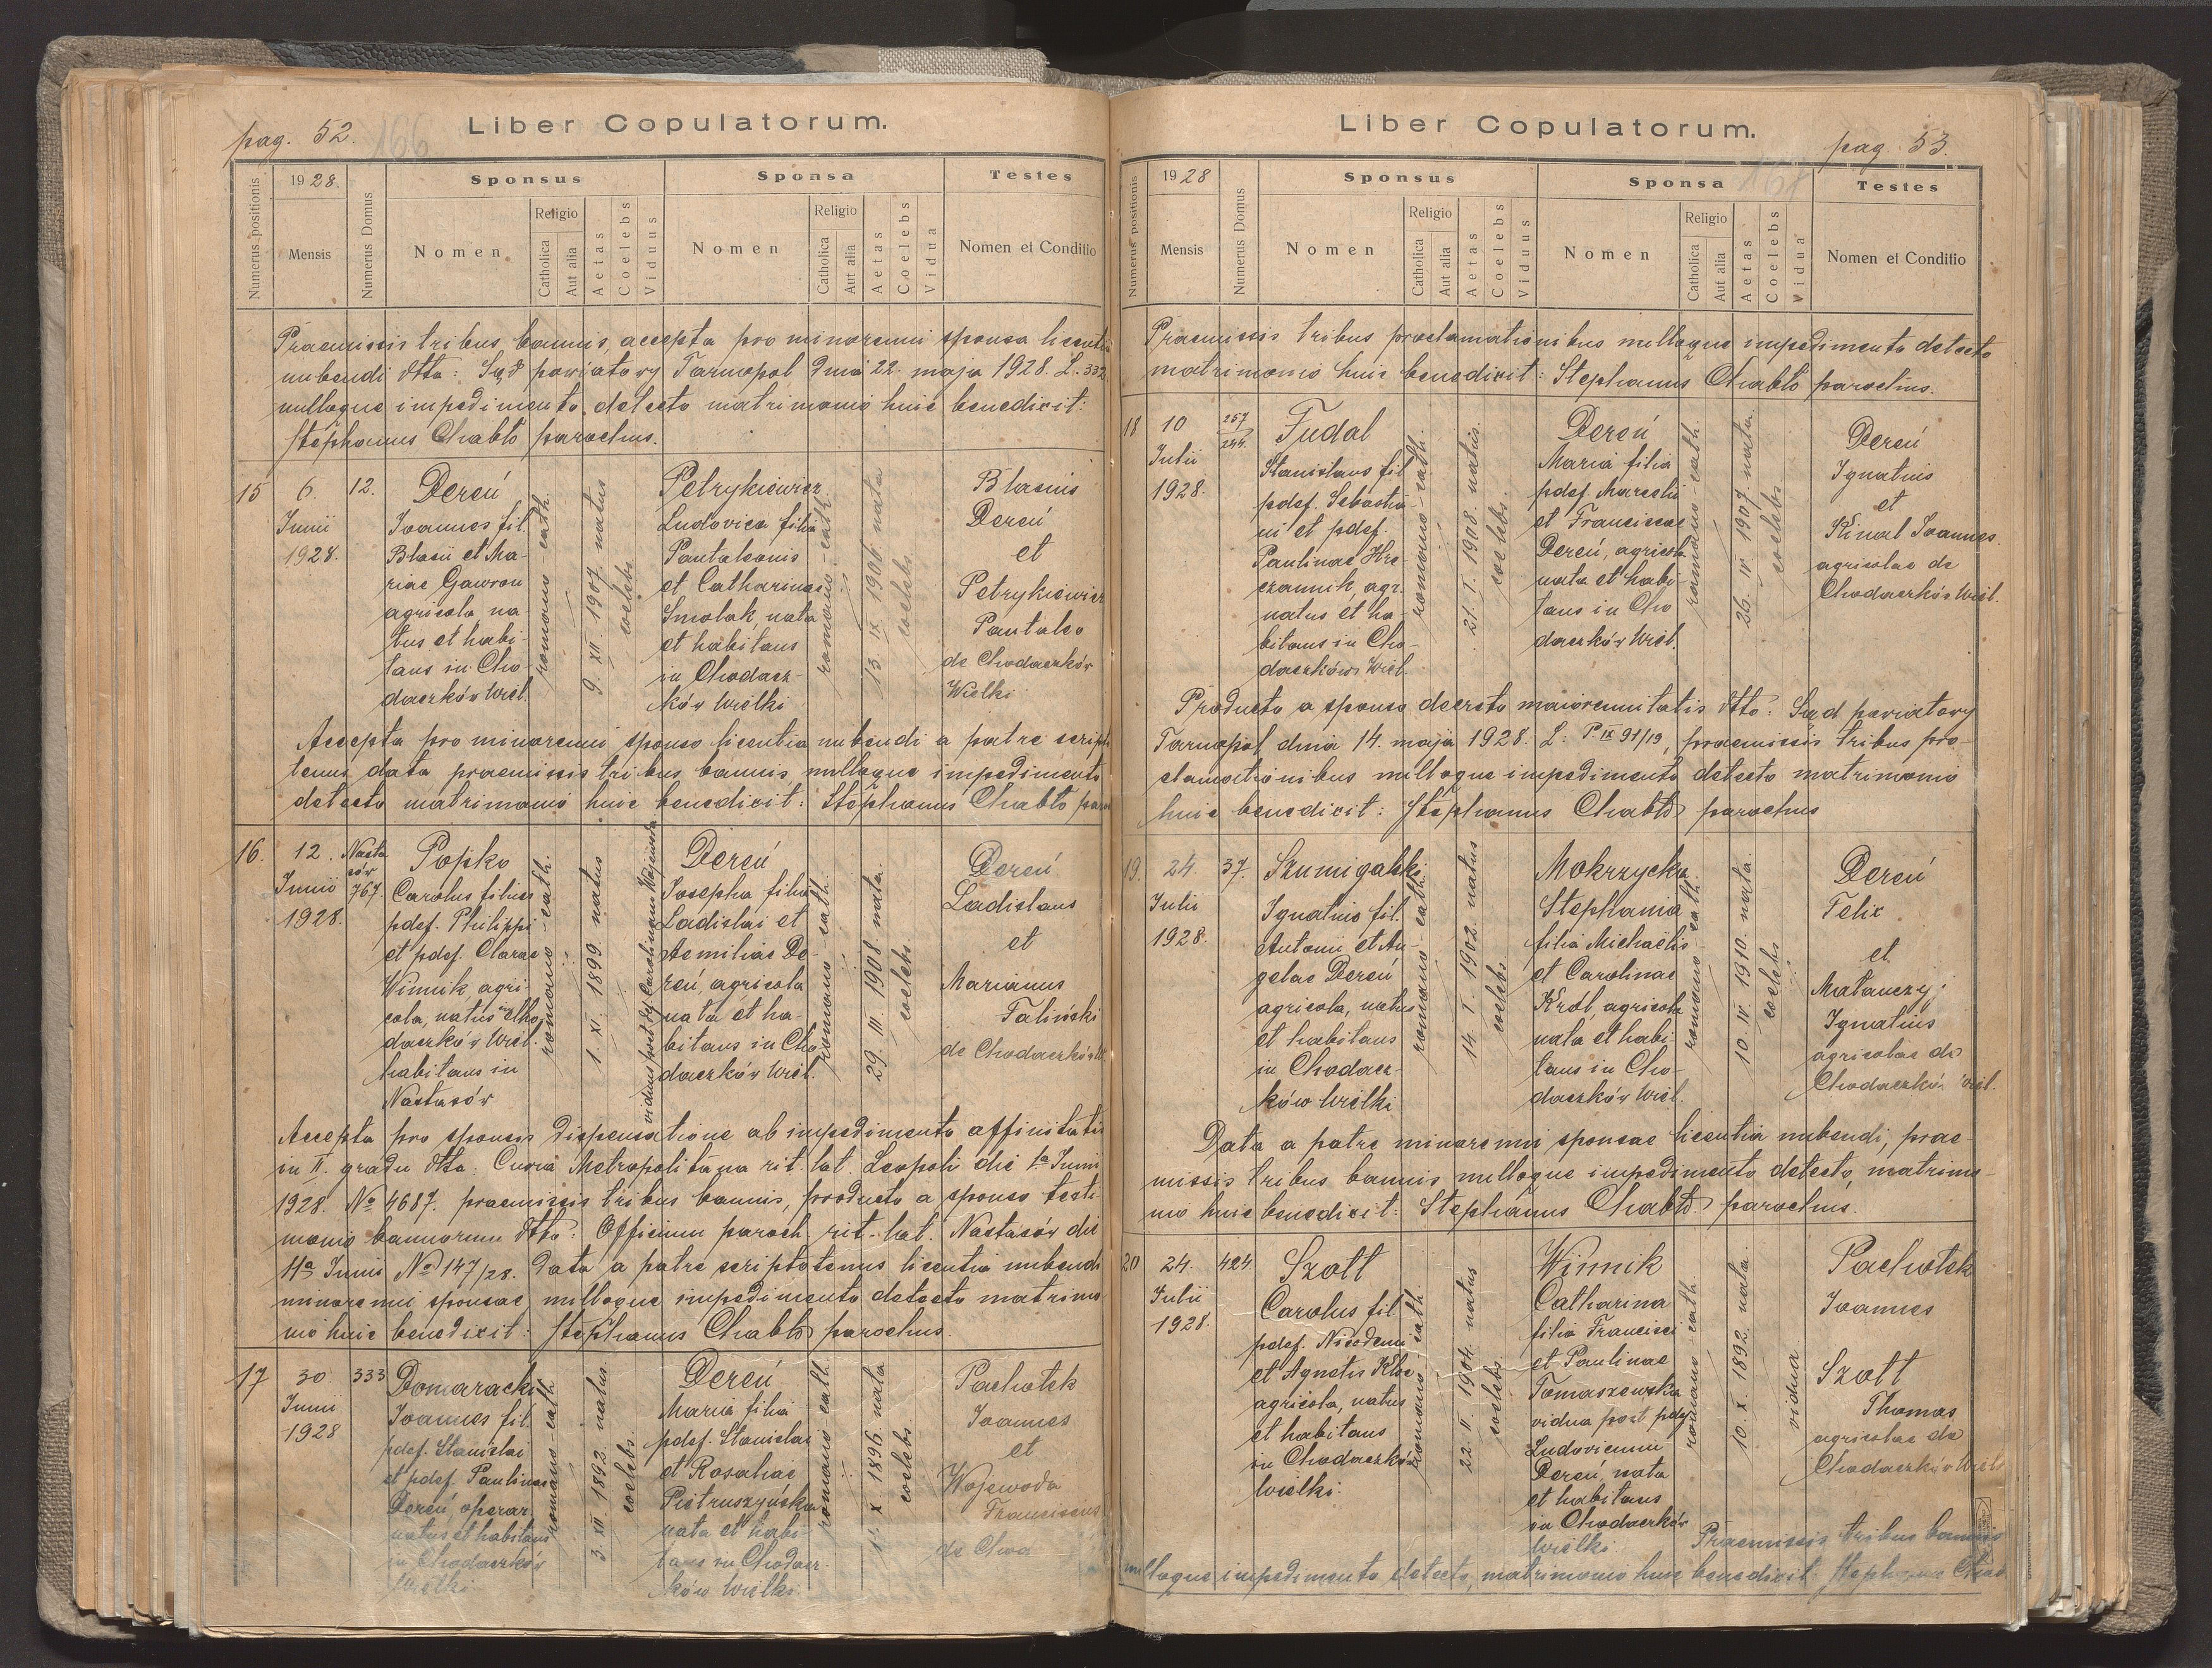 pag. 52.
166
Liber Copulatorum.
Numerus positionis
1928.
Mensis
Numerus Domus
Sponsus
Nomen
Religio
Catholica
Aut alia
Aetas
Coelebs
Viduus
Sponsa
Nomen
Religio
Catholica
Aut alia
Aetas
Coelebs
Vidua
Testes
Nomen et Conditio
Praemissis tribus bannis, accepta pro minorenni sponsa licentia
nubendi dtto: Sąd powiatowy Tarnopol dnia 22. maja 1928. L. 332
nulloque impedimento detecto matrimonio huic benedixit:
Stephanus Chabło parochus.
15
6.
Junii
1928.
12.
Dereń
Joannes fil.
Blasii et Ma-
riae Gawron
agricola na-
tus et habi-
tans in Cho
daczków Wiel.
romano-cath.
9. XII 1907. natus
coelebs.
Petrykiewicz
Ludovica filia
Pantaleonis
et Catharinae
Smolak, nata
et habitans
in Chodacz-
ków Wielki
romano-cath.
13. IX 1906 nata
coelebs
Blasius
Dereń
et
Petrykiewicz
Pantaleo
de Chodaczków
Wielki
Accepta pro minorenni sponso licentia nubendi a patre scripto
tenus data praemissis tribus bannis nulloque impedimento
detecto matrimonio huic benedixit: Stephanus Chabło paro
16.
12.
Junii
1928.
Nasta
sów
767.
Popko
Carolus filius
pdef. Philippi
et pdef. Clarae
Winnik, agri-
cola, natus in Cho
daczków Wiel.
habitans in
Nastasów
romano-cath.
1. XI. 1899. natus
viduus post def. Carolinam Wojewoda
Dereń
Josepha filia
Ladislai et
Aemiliae De-
reń, agricola
nata et ha-
bitans in Cho
daczków Wiel.
romano-cath.
29. III. 1908 nata.
coelebs
Dereń
Ladislaus
et
Marianus
Faliński
de Chodaczków W
Accepta pro sponsis dispensatione ab impedimento affinitatis
in II. gradu dtto. Curia Metropolitana rit. lat. Leopoli die 1a Junii
1928. No 4687. praemissis tribus bannis, producto a sponso testi
monio bannorum dtto: Officium paroch. rit. lat. Nastasów die
11a Junii No 147/28. data a patre scriptotenus licentia nubendi
minorenni sponsae, nulloque impedimento detecto matrimo
nio huic benedixit: Stephanus Chabło parochus.
17
30
Junii
1928
333
Domaracki
Joannes fil.
pdef. Stanislai
et pdef. Paulinae
Dereń, operar.
natus et habitans
in Chodaczków
Wielki
romano-cath
3. XII. 1892. natus.
coelebs.
Dereń
Maria filia
pdef. Stanislai
et Rosaliae
Pietruszyńska
nata et habi-
tans in Chodacz-
ków Wielki
romano-cath
X. 1896. nata
coelebs
Pachołek
Joannes
et
Wojewoda
Franciscus
de Chod
pag. 53.
Liber Copulatorum.
Numerus positionis
1928
Mensis
Numerus Domus
Sponsus
Nomen
Religio
Catholica
Aut alia
Aetas
Coelebs
Viduus
Sponsa
Nomen
Religio
Catholica
Aut alia
Aetas
Coelebs
Vidua
Testes
Nomen et Conditio
Praemissis tribus proclamationibus nulloque impedimento detecto
matrimonio huic benedixit: Stephanus Chabło parochus.
18
10
Julii
1928.
257
244.
Fudal
Stanislaus fil
pdef. Sebastia
ni et pdef.
Paulinae Hre
czannik, agr.
natus et ha-
bitans in Cho-
daczków Wiel.
romano-cath.
21. I. 1908. natus.
coelebs.
Dereń
Maria filia
pdef. Marcelli
et Franciscae
Dereń, agricola
nata et habi-
tans in Cho
daczków Wiel.
romano-cath.
26. IV. 1907 nata.
coelebs
Dereń
Ignatius
et
Kinal Joannes.
agricolae de
Chodaczków Wiel.
Producto a sponso decreto maiorennitatis dtto: Sąd powiatowy
Tarnopol dnia 14. maja 1928. L: P. IX 91/19, praemissis tribus pro-
clamationibus nulloque impedimento detecto matrimonio
huic benedixit: Stephanus Chabło parochus
19.
24.
Julii
1928.
37.
Szumigalski
Ignatius fil.
Antonii et An-
gelae Dereń
agricola, natus
et habitans
in Chodacz-
ków Wielki
romano-cath.
14. I. 1902. natus
coelebs
Mokrzycka
Stephania
filia Michaëlis
et Carolinae
Król, agricola
nata et habi-
tans in Cho-
daczków Wiel.
romano-cath
10. IV. 1910. nata.
coelebs
Dereń
Felix
et
Matanczyj
Ignatius
agricolae de
Chodaczków Wiel.
Data a patre minorenni sponsae licentia nubendi, prae-
missis tribus bannis nulloque impedimento detecto, matrimo-
nio huic benedixit: Stephanus Chabło parochus.
20
24.
Julii
1928.
424.
Szott
Carolus fil.
pdef. Nicodemi
et Agnetis Kloc
agricola, natus
et habitans
in Chodaczków
Wielki.
romano-cath
22. II. 1904. natus
coelebs
Winnik
Catharina
filia Francisci
et Paulinae
Tomaszewska
vidua post pdef
Ludovicum
Dereń, nata
et habitans
in Chodaczków
Wielki.
romano-cath
10. X. 1892. nata.
vidua
Pachołek
Joannes
Szott
Thomas
agricolae de
Chodaczków Wiel.
Praemissis tribus bannis
nulloque impedimento detecto, matrimonio huic benedixit: Stephanus Chab